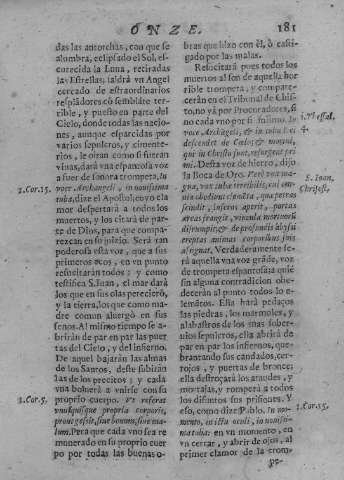 ONZE.
181
das las antorchas, con que se
alumbra, eclipsado el Sol, es-
curecida la Luna, retiradas
las Estrellas; saldrà vn Angel
cercado de estraordinarios
resplãdores cõ semblãte terri-
ble, y puesto en parte del
Cielo, donde todas las nacio-
nes, aunque esparcidas por
varios sepulcros, y cimente-
rios, le oiran como si fueran
vivas, darà vna espantosa voz
a fuer de sonora trompeta, In
1.Cor.15.
voce Archangeli, in novissima
tuba, dize el Apostol; cuyo cla
mor despertarà a todos los
muertos, y los citarà de par-
te de Dios, para que compa-
rezcan en su juizio. Serà tan
poderosa esta voz, que a sus
primeros ecos, en vn punto
resucitaràn todos; y como
testifica S. Iuan, el mar darà
los que en sus olas perecierõ,
y la tierra, los que como ma-
dre comun alvergò en sus
senos. Al mismo tiempo se a-
briràn de par en par las puer-
tas del Cielo, y del infierno.
De aquel bajaràn las almas
de los Santos, deste subiràn
las de los precitos; y cada
vna bolverà a vnirse con su
2.Cor.5.
proprio cuerpo. Vt referat
vnusquisque propria corporis,
prout gessit, sive bonum, sive ma-
lum. Para que cada vno sea re
munerado en su proprio cuer
po por todas las buenas o-
bras que hizo con èl, ò casti-
gado por las malas.
Resucitarà pues todos los
muertos al son de aquella hor
rible trompeta, y compare-
ceràn en el Tribunal de Chris-
to, no yà por Procuradores, si
no cada vno por si mismo. In
1.Thessal.
4.
voce Archãgeli, & in tuba Dei
descendet de Cœlo; & mortui,
qui in Christo sunt, resurgent pri
mi. Desta voz de hierro, dijo
la Boca de Oro. Perè vox ma-
S. Ioan,
Chrisost,
gna, vox tubæ terribilis, cui om-
nia obediunt elementa, quæ petras
scindit, inferos aperit, portas
æreas frangit, vincula mortuorũ
dirrumpit, & de profundis abyssi
ereptas animas corporibus suis
assignat. Verdaderamente se-
rà aquella vna voz grãde, voz
de trompeta espantosa, a quiè
sin alguna contradicion obe-
deceràn al punto todos lo e-
lemẽtos. Esta harà pedaços
las piedras, los marmoles, y
alabastros de los mas sober-
uios sepulcros; ella abrirà de
par en par los infiernos, que-
brantando sus candados, cer-
rojos, y puertas de bronce;
ella destroçarà los ataudes, y
mortajas, y romperà a todos
los difuntos sus prisiones. Y
eso, como dize Pablo. In mo-
1.Cor.15.
mento, in ictu oculi, in novissi-
ma tuba: en vn momento, en
vn cerrar, y abrir de ojos, al
primer clamor de la trom-
pe-